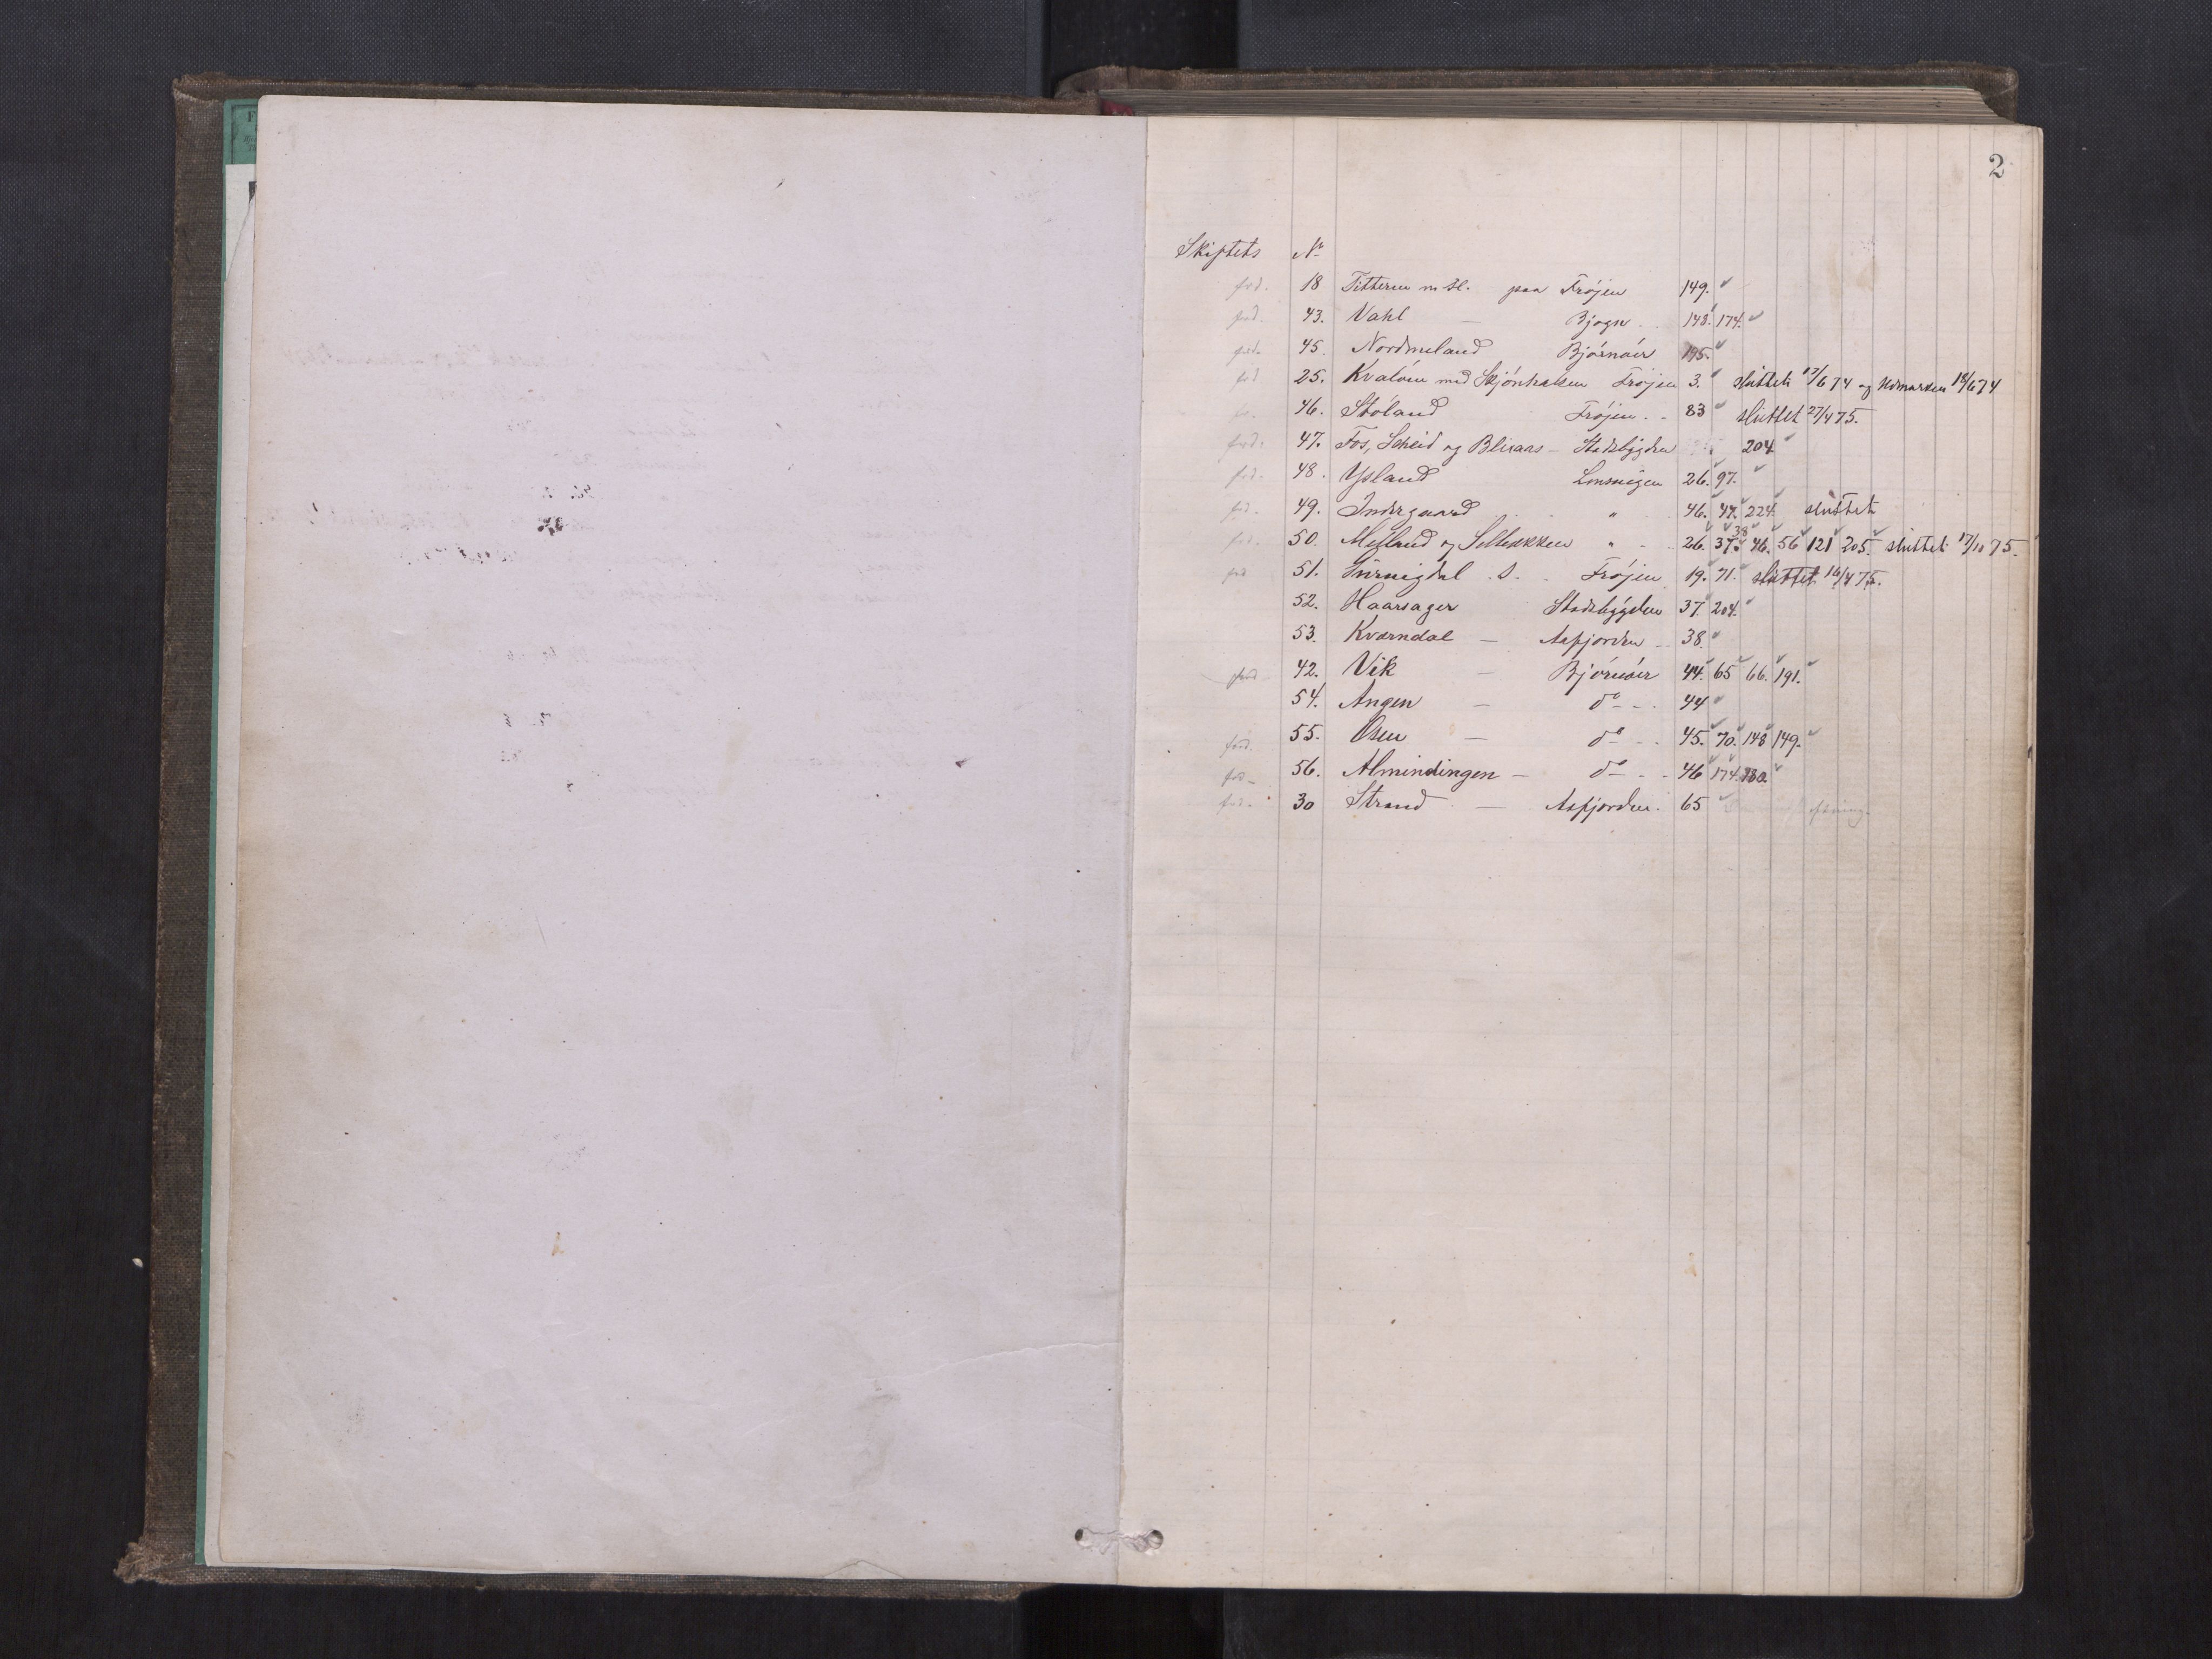 2
Skiftets No
ford. 18 Titteren m fl. paa Fröjen 149.
ford. 43. Vahl — Bjugn 148. 174.
ford. 45. Nordmeland Björnöer 195.
ford 25. Kvalöen med Skjönhalsen Fröjen 3. sluttet 17/6 74 og Udmarken 18/6 74
46. Stöland Fröjen 83 sluttet 27/4 75.
ford. 47. Fos, Scheid og Blixaas — Stadsbygden 204
ford. 48. Ysland 26. 97.
ford. 49. Indergaard " 46. 47. 224. sluttet
ford. 50. Melland og Selbekken " 26. 37. 38 46. 56 121 205. sluttet 17/10 75.
ford 51. S. Fröjen 19. 71. sluttet 16/4 75.
52. Haarsager Stadsbygden 37. 204.
53. Kværndal — Aafjorden 38.
ford 42. Vik — Björnöer 44. 65 66. 191.
54. Angen — do 44
ford. 55. Osen — do 45. 70. 148 149.
ford 56. Almindingen — do 46 174. 180.
ford. 30 Strand — Aafjorden. 65